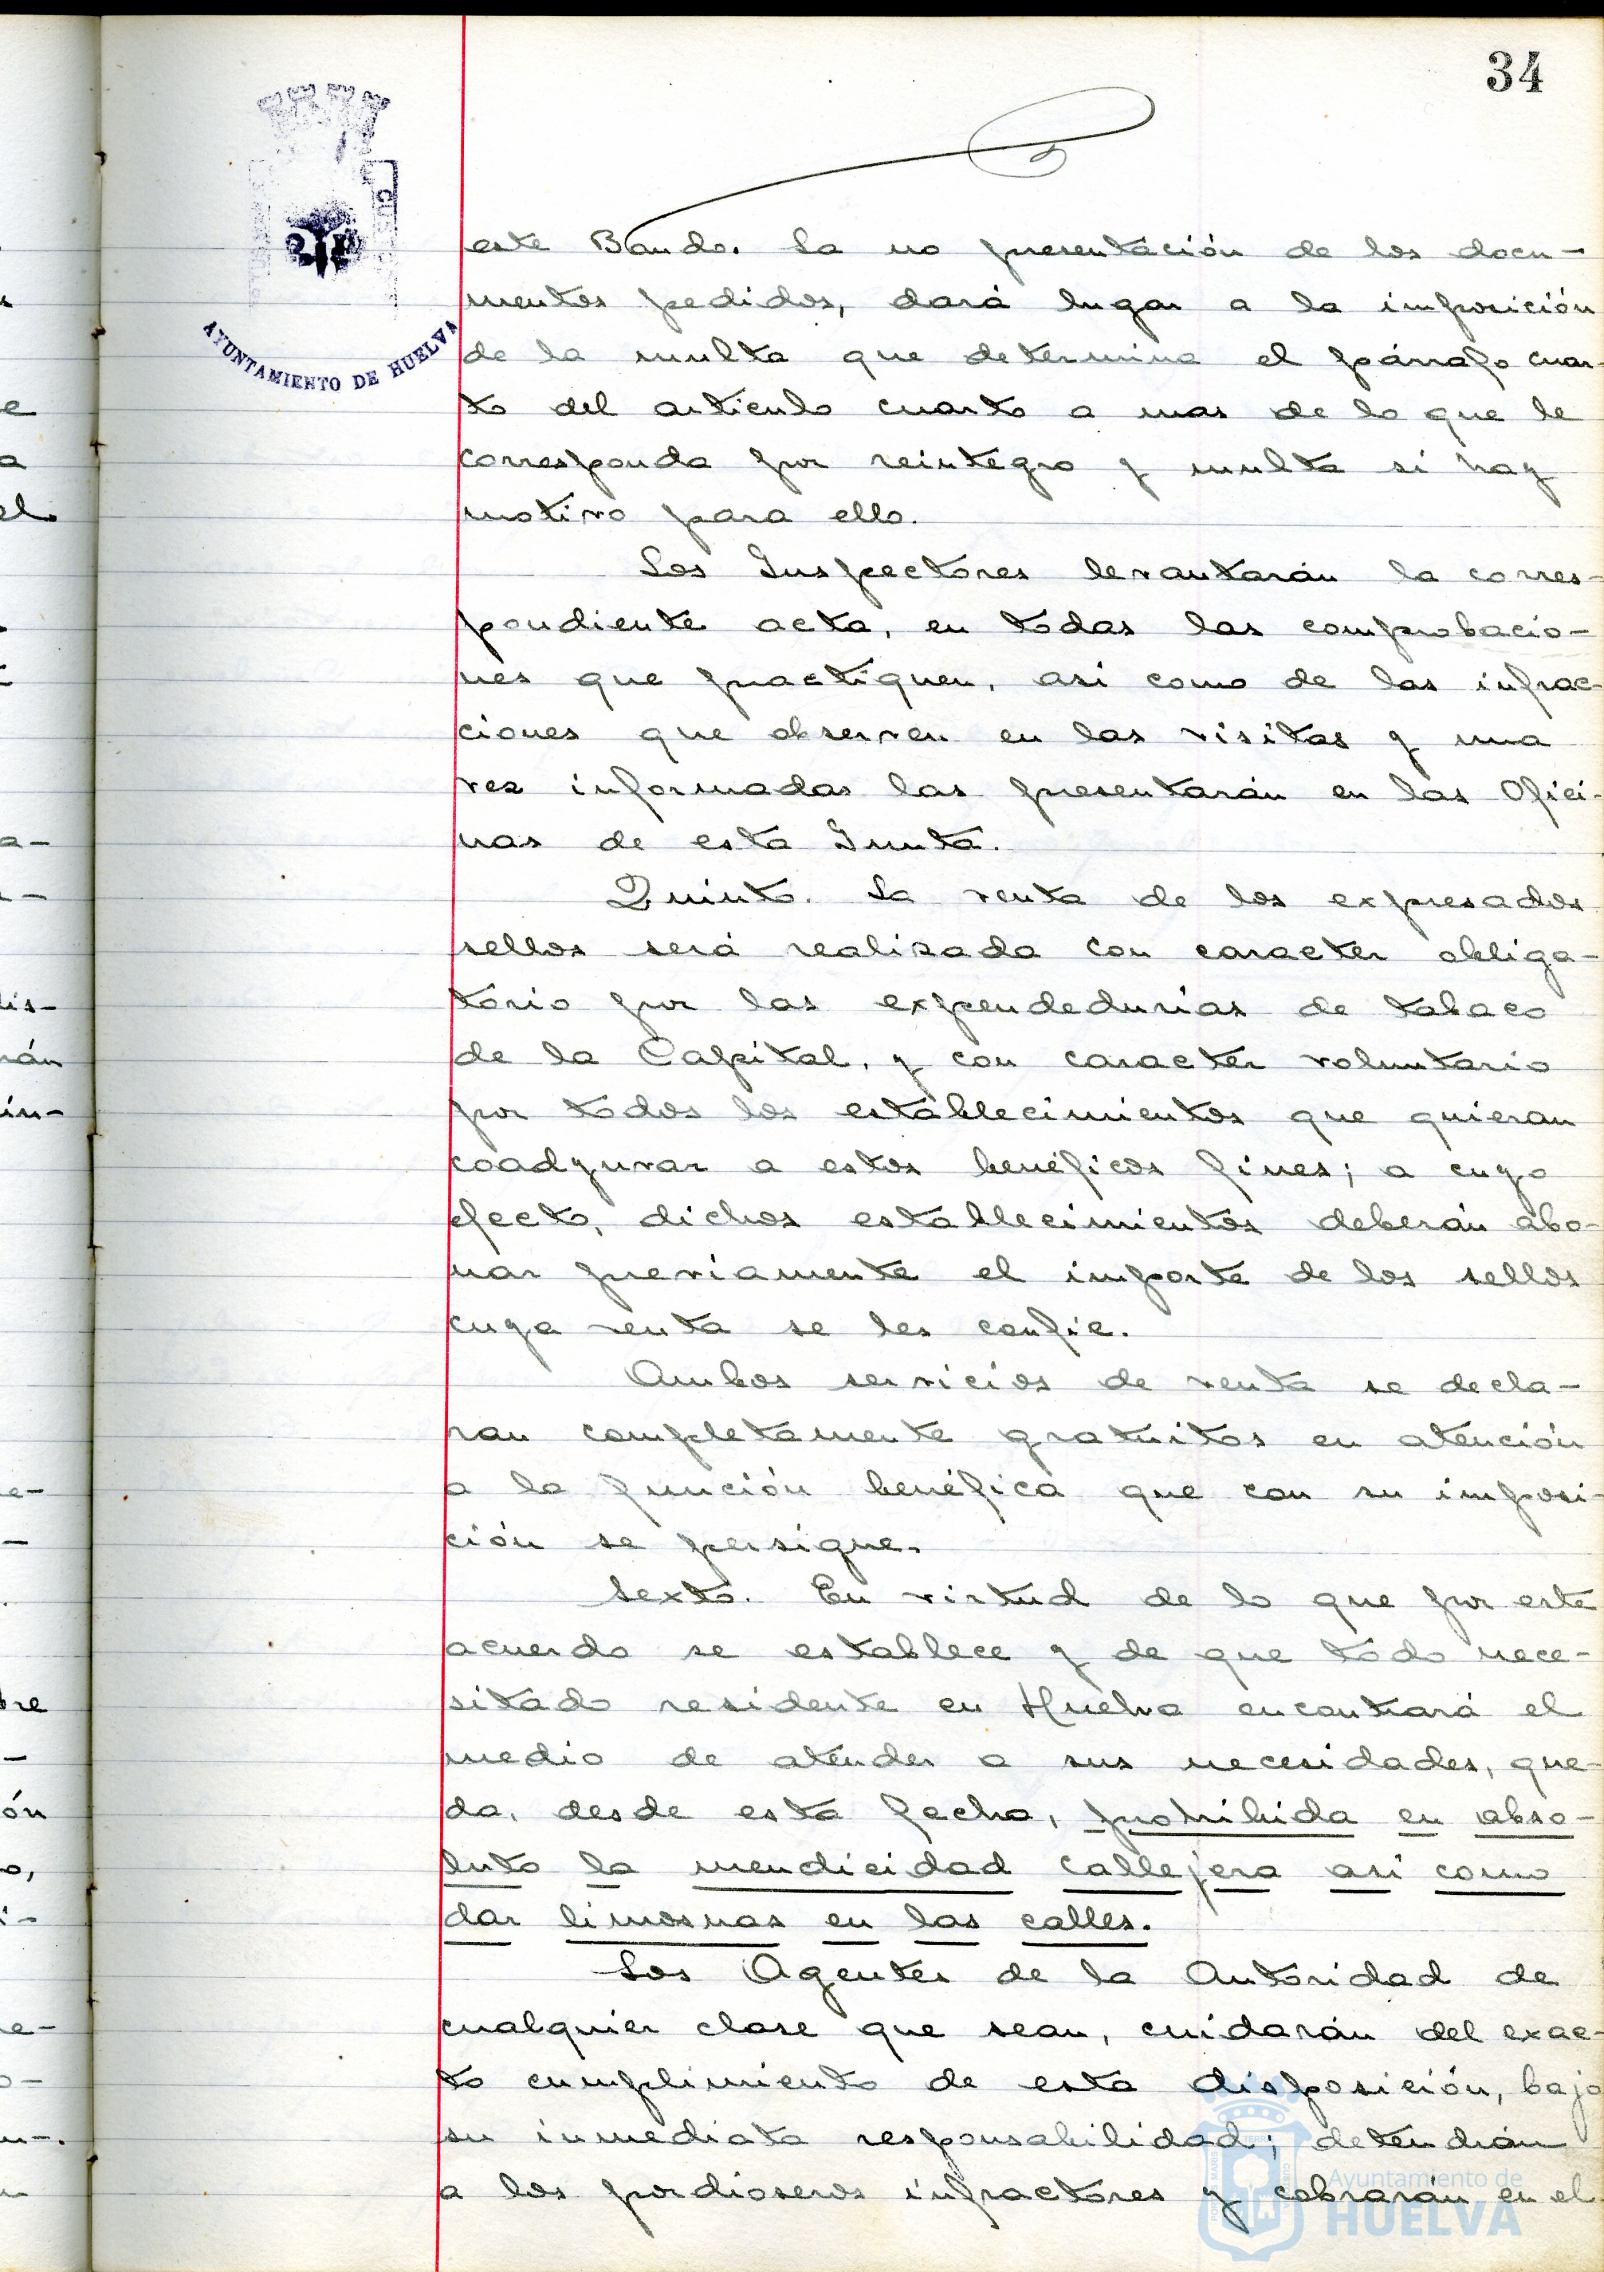 34
AYUNTAMIENTO DE HUELVA
este Bando. La no presentación de los docu-
mentos pedidos, dará lugar a la imposición
de la multa que determina el párrafo cuar-
to del artículo cuarto a mas de lo que le
corresponda por reintegro y multa si hay
motivo para ello.
Los Inspectores levantarán la corres-
pondiente acta, en todas las comprobacio-
nes que practiquen, asi como de las infrac-
ciones que observen en las visitas y una
vez informadas las presentarán en las Ofici-
nas de esta Junta.
Quinto. La venta de los expresados
sellos será realizada con caracter obliga-
torio por las expendedurías de tabaco
de la Capital, y con caracter voluntario
por todos los establecimientos que quieran
coadyuvar a estos benéficos fines; a cuyo
efecto, dichos establecimientos deberán abo-
nar previamente el importe de los sellos
cuya venta se les confie.
Ambos servicios de venta se decla-
ran completamente gratuitos en atención
a la función benéfica que con su imposi-
ción se persigue.
Sexto. En virtud de lo que por este
acuerdo se establece y de que todo nece-
sitado residente en Huelva encontrará el
medio de atender a sus necesidades, que-
da, desde esta fecha, prohibida en abso-
luto la mendicidad callejera asi como
dar limosnas en las calles.
Los Agentes de la Autoridad de
cualquier clase que sean, cuidarán del exac-
to cumplimiento de esta disposición, bajo
su inmediata responsabilidad; detendrán
a los pordioseros infractores y cobrarán en el
Ayuntamiento de
HUELVA